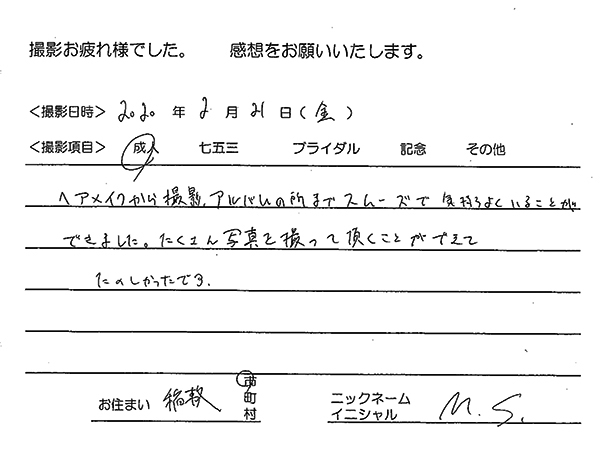 撮影お疲れ様でした。 感想をお願いいたします。
<撮影日時> 2020 年 2 月 21 日 ( 金 )
<撮影項目> 成人 七五三 ブライダル 記念 その他
ヘアメイクから撮影、アルバムの所までスムーズで気持ちよくいることが
できました。たくさん写真を撮って頂くことができて
たのしかったです。
お住まい 稲敷 市 町 村 ニックネーム イニシャル M.S.